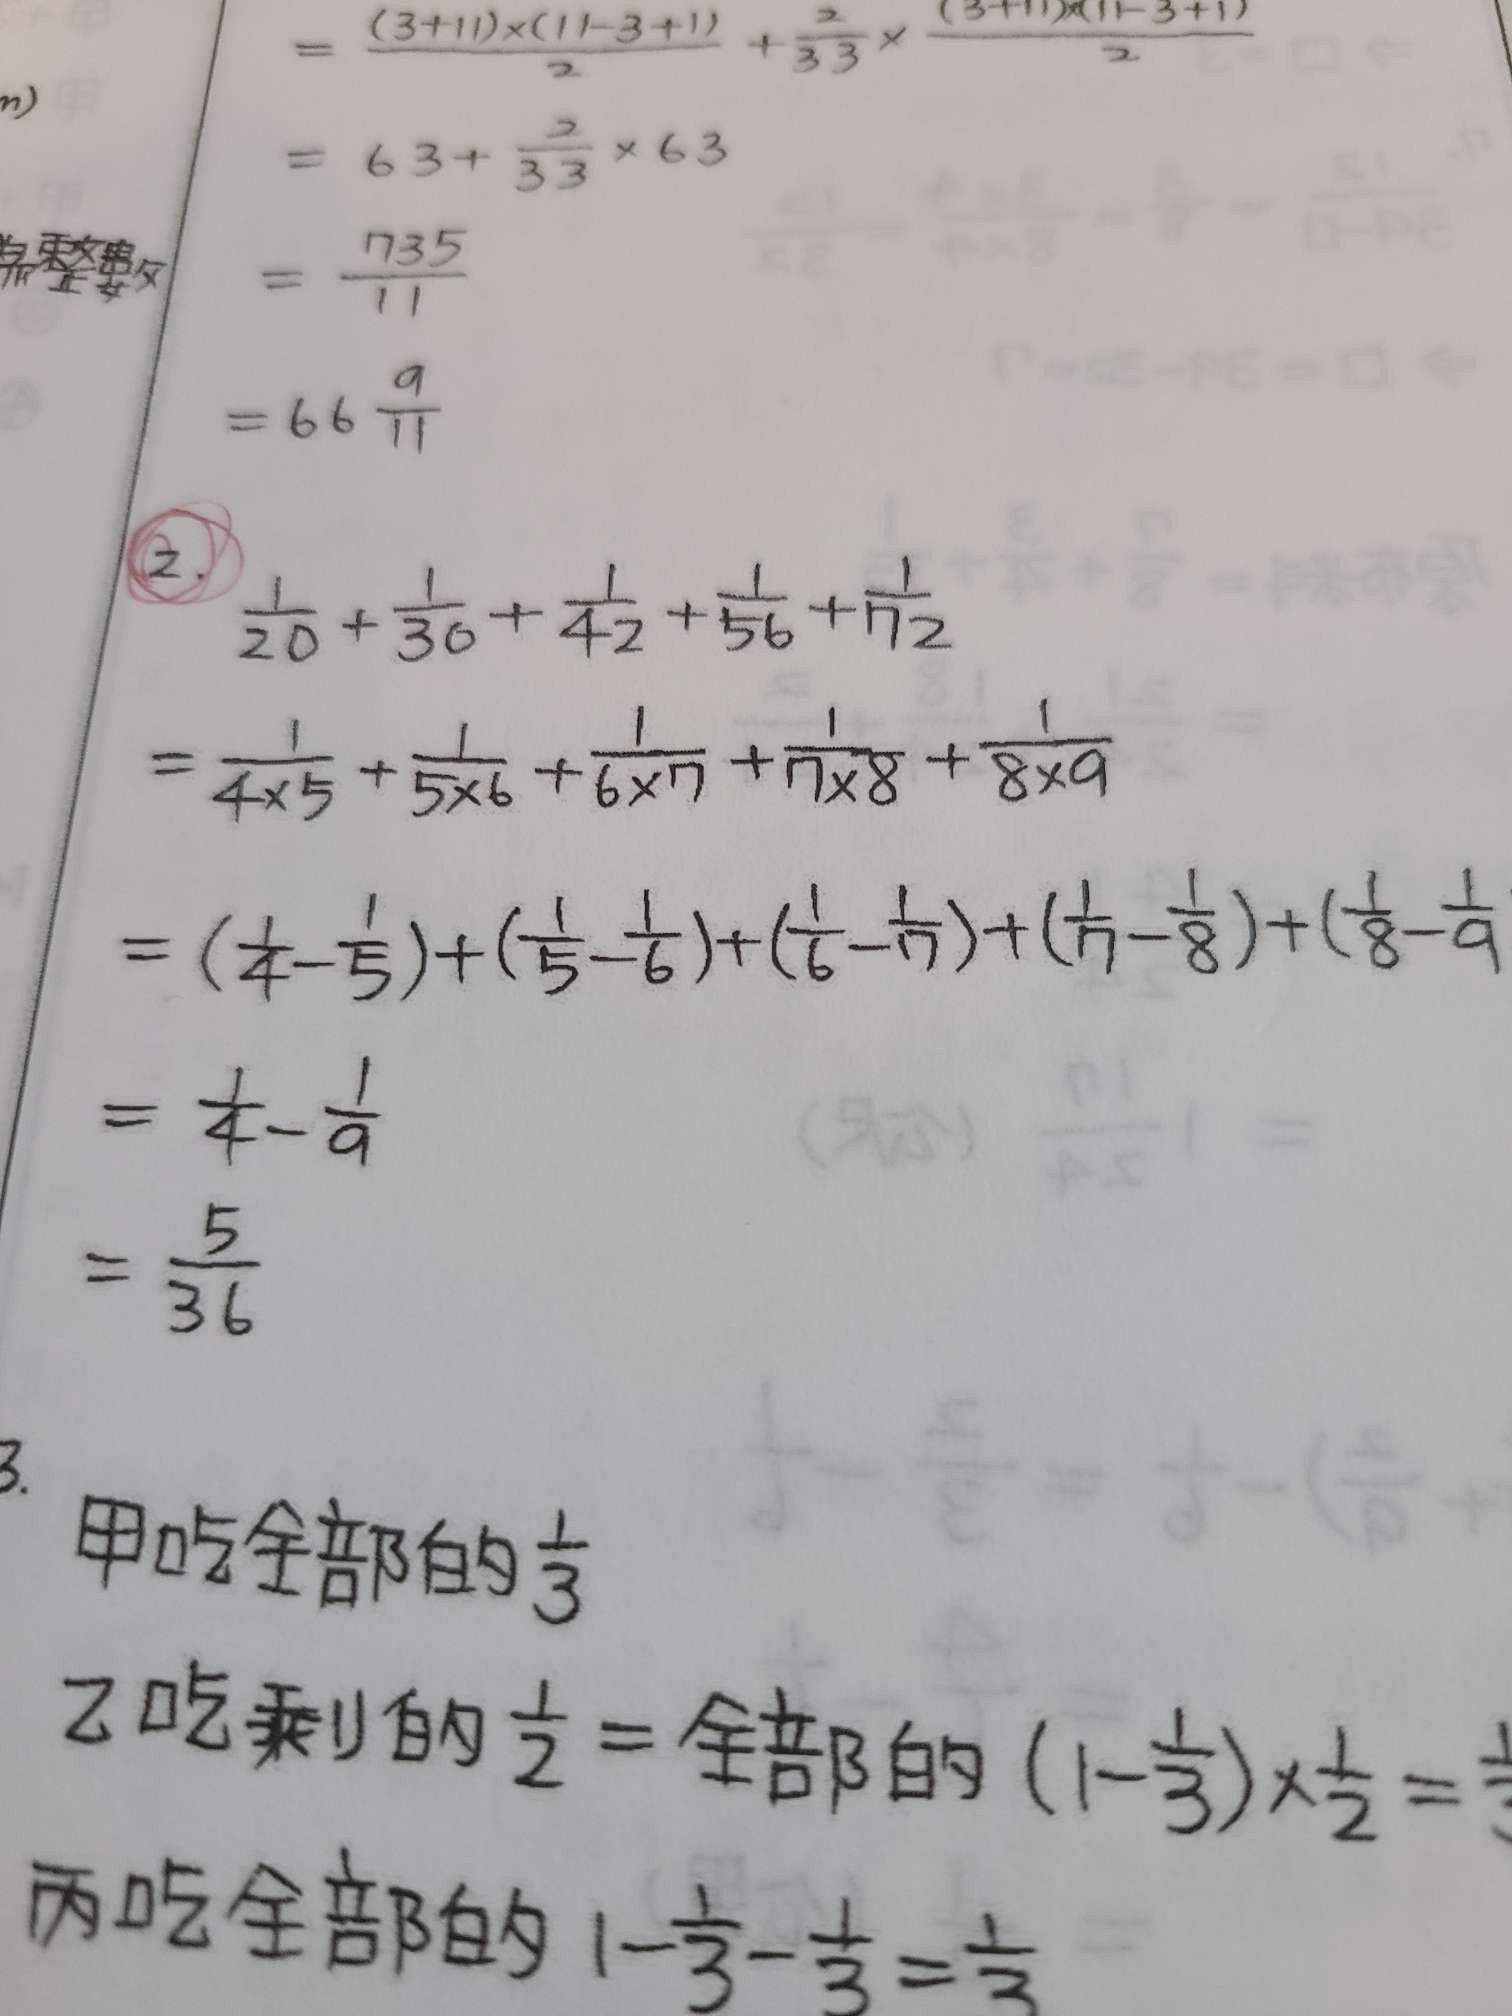 = (3+11)×(11-3+1)/2 + 2/33 × (3+11)×(11-3+1)/2
n)
= 63 + 2/33 × 63
= 735/11
= 66 9/11
2.
1/20 + 1/30 + 1/42 + 1/56 + 1/72
= 1/4×5 + 1/5×6 + 1/6×7 + 1/7×8 + 1/8×9
= (1/4 - 1/5) + (1/5 - 1/6) + (1/6 - 1/7) + (1/7 - 1/8) + (1/8 - 1/9
= 1/4 - 1/9
= 5/36
3.
甲吃全部的 1/3
乙吃剩的 1/2 = 全部的 (1 - 1/3) × 1/2 =
丙吃全部的 1 - 1/3 - 1/3 = 1/3